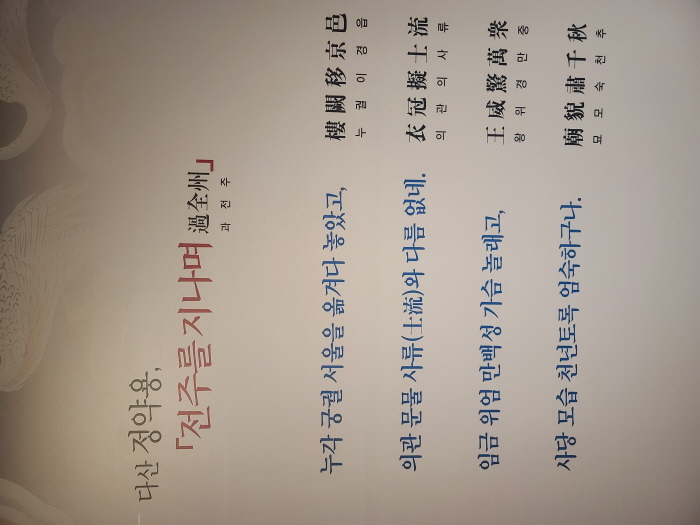 다산 정약용,
「전주를 지나며 過全州」
과전주
누각 궁궐 서울을 옮겨다 놓았고, 樓闕移京邑
누궐이경읍
의관 문물 사류(士流)와 다름 없네. 衣冠擬士流
의관의사류
임금 위엄 만백성 가슴 놀래고, 王威驚萬衆
왕위경만중
사당 모습 천년토록 엄숙하구나. 廟貌肅千秋
묘모숙천추